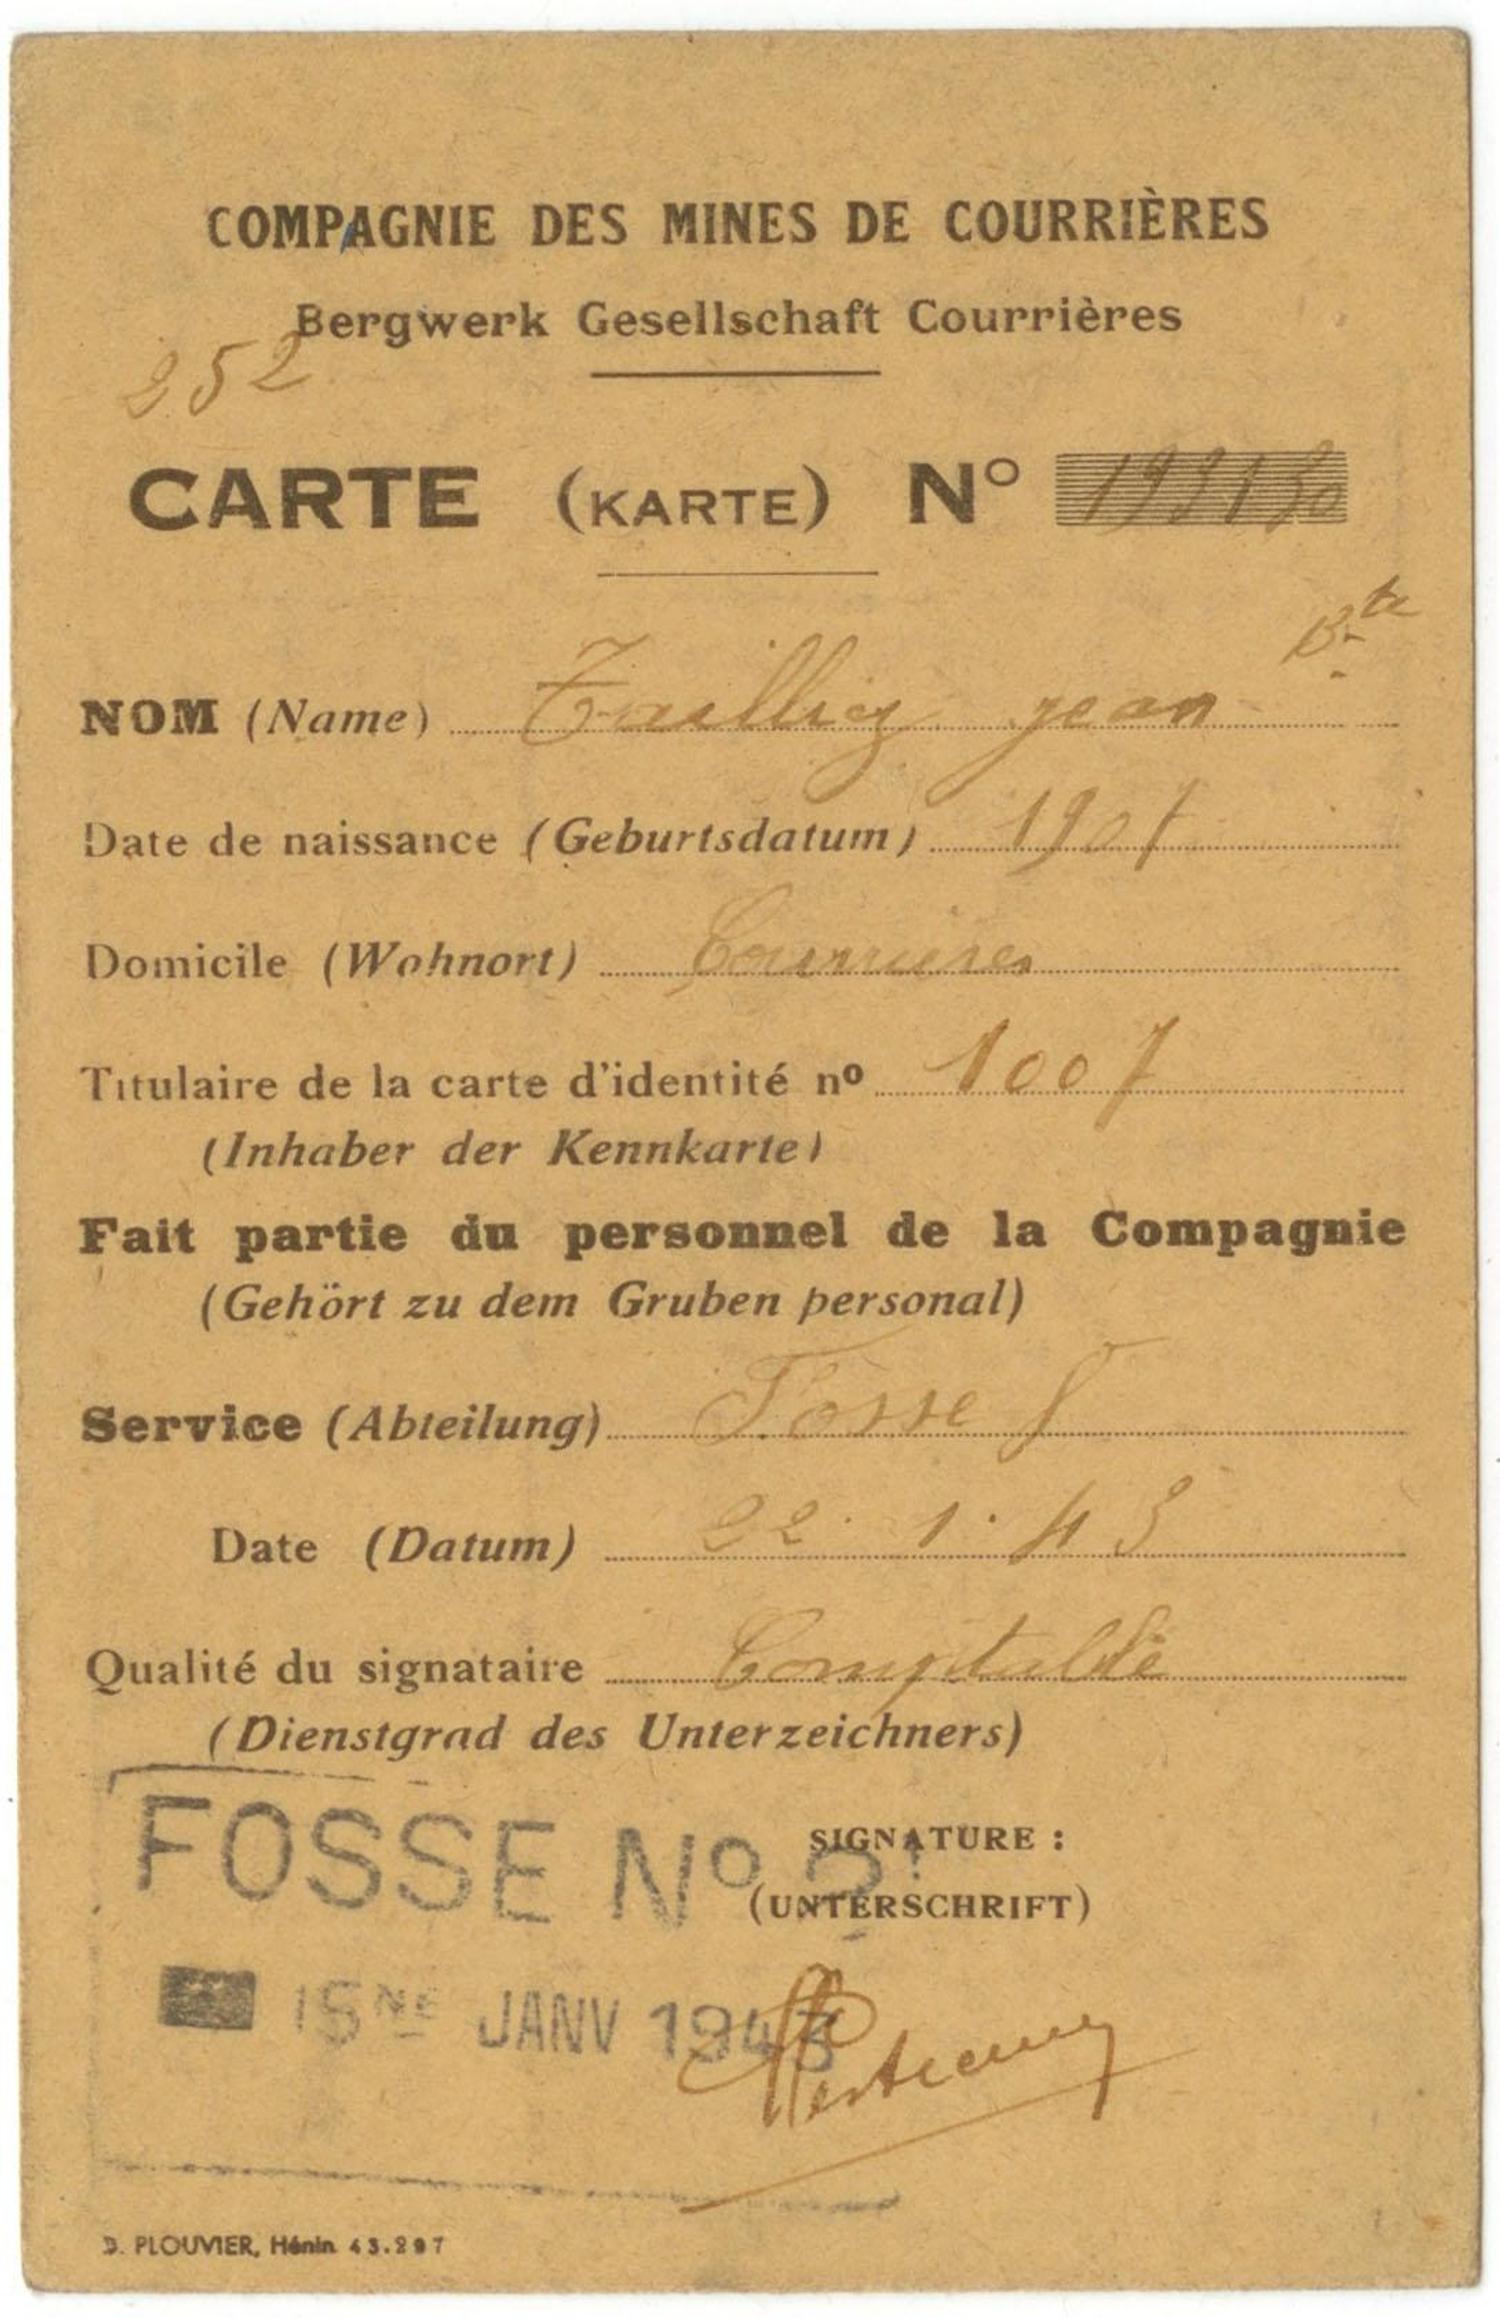 COMPAGNIE DES MINES DE COURRIÈRES
Bergwerk Gesellschaft Courrières
252
CARTE (KARTE) Nº
Bte
NOM (Name) Tailliez jean
Date de naissance (Geburtsdatum) 1907
Domicile (Wohnort) Courrieres
Titulaire de la carte d'identité nº 1007
(Inhaber der Kennkarte)
Fait partie du personnel de la Compagnie
(Gehört zu dem Gruben personal)
Service (Abteilung) Fosse 8
Date (Datum) 22. 1. 43
Qualité du signataire Comptable
(Dienstgrad des Unterzeichners)
FOSSE Nº
SIGNATURE :
(UNTERSCHRIFT)
JANV 1943
PLOUVIER, Hénin 43.297